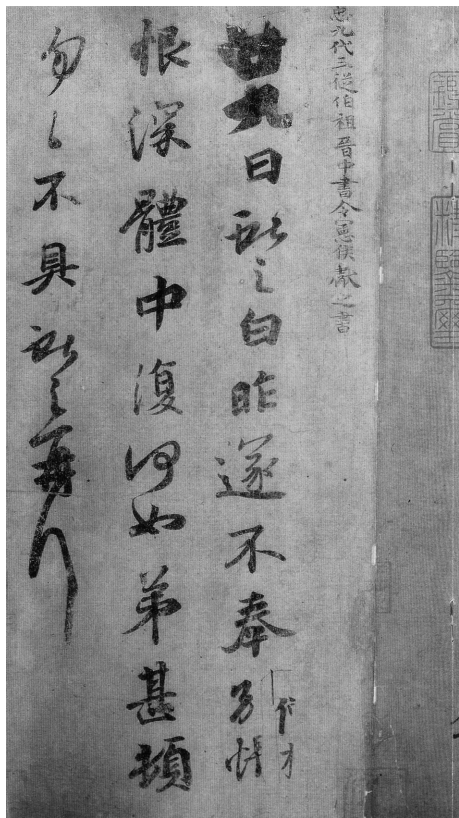 九代三從伯祖晉中書令憲侯獻之書
廿九日獻之白昨遂不奉別悵
恨深體中復何如弟甚頓
勿〻不具獻之再拜